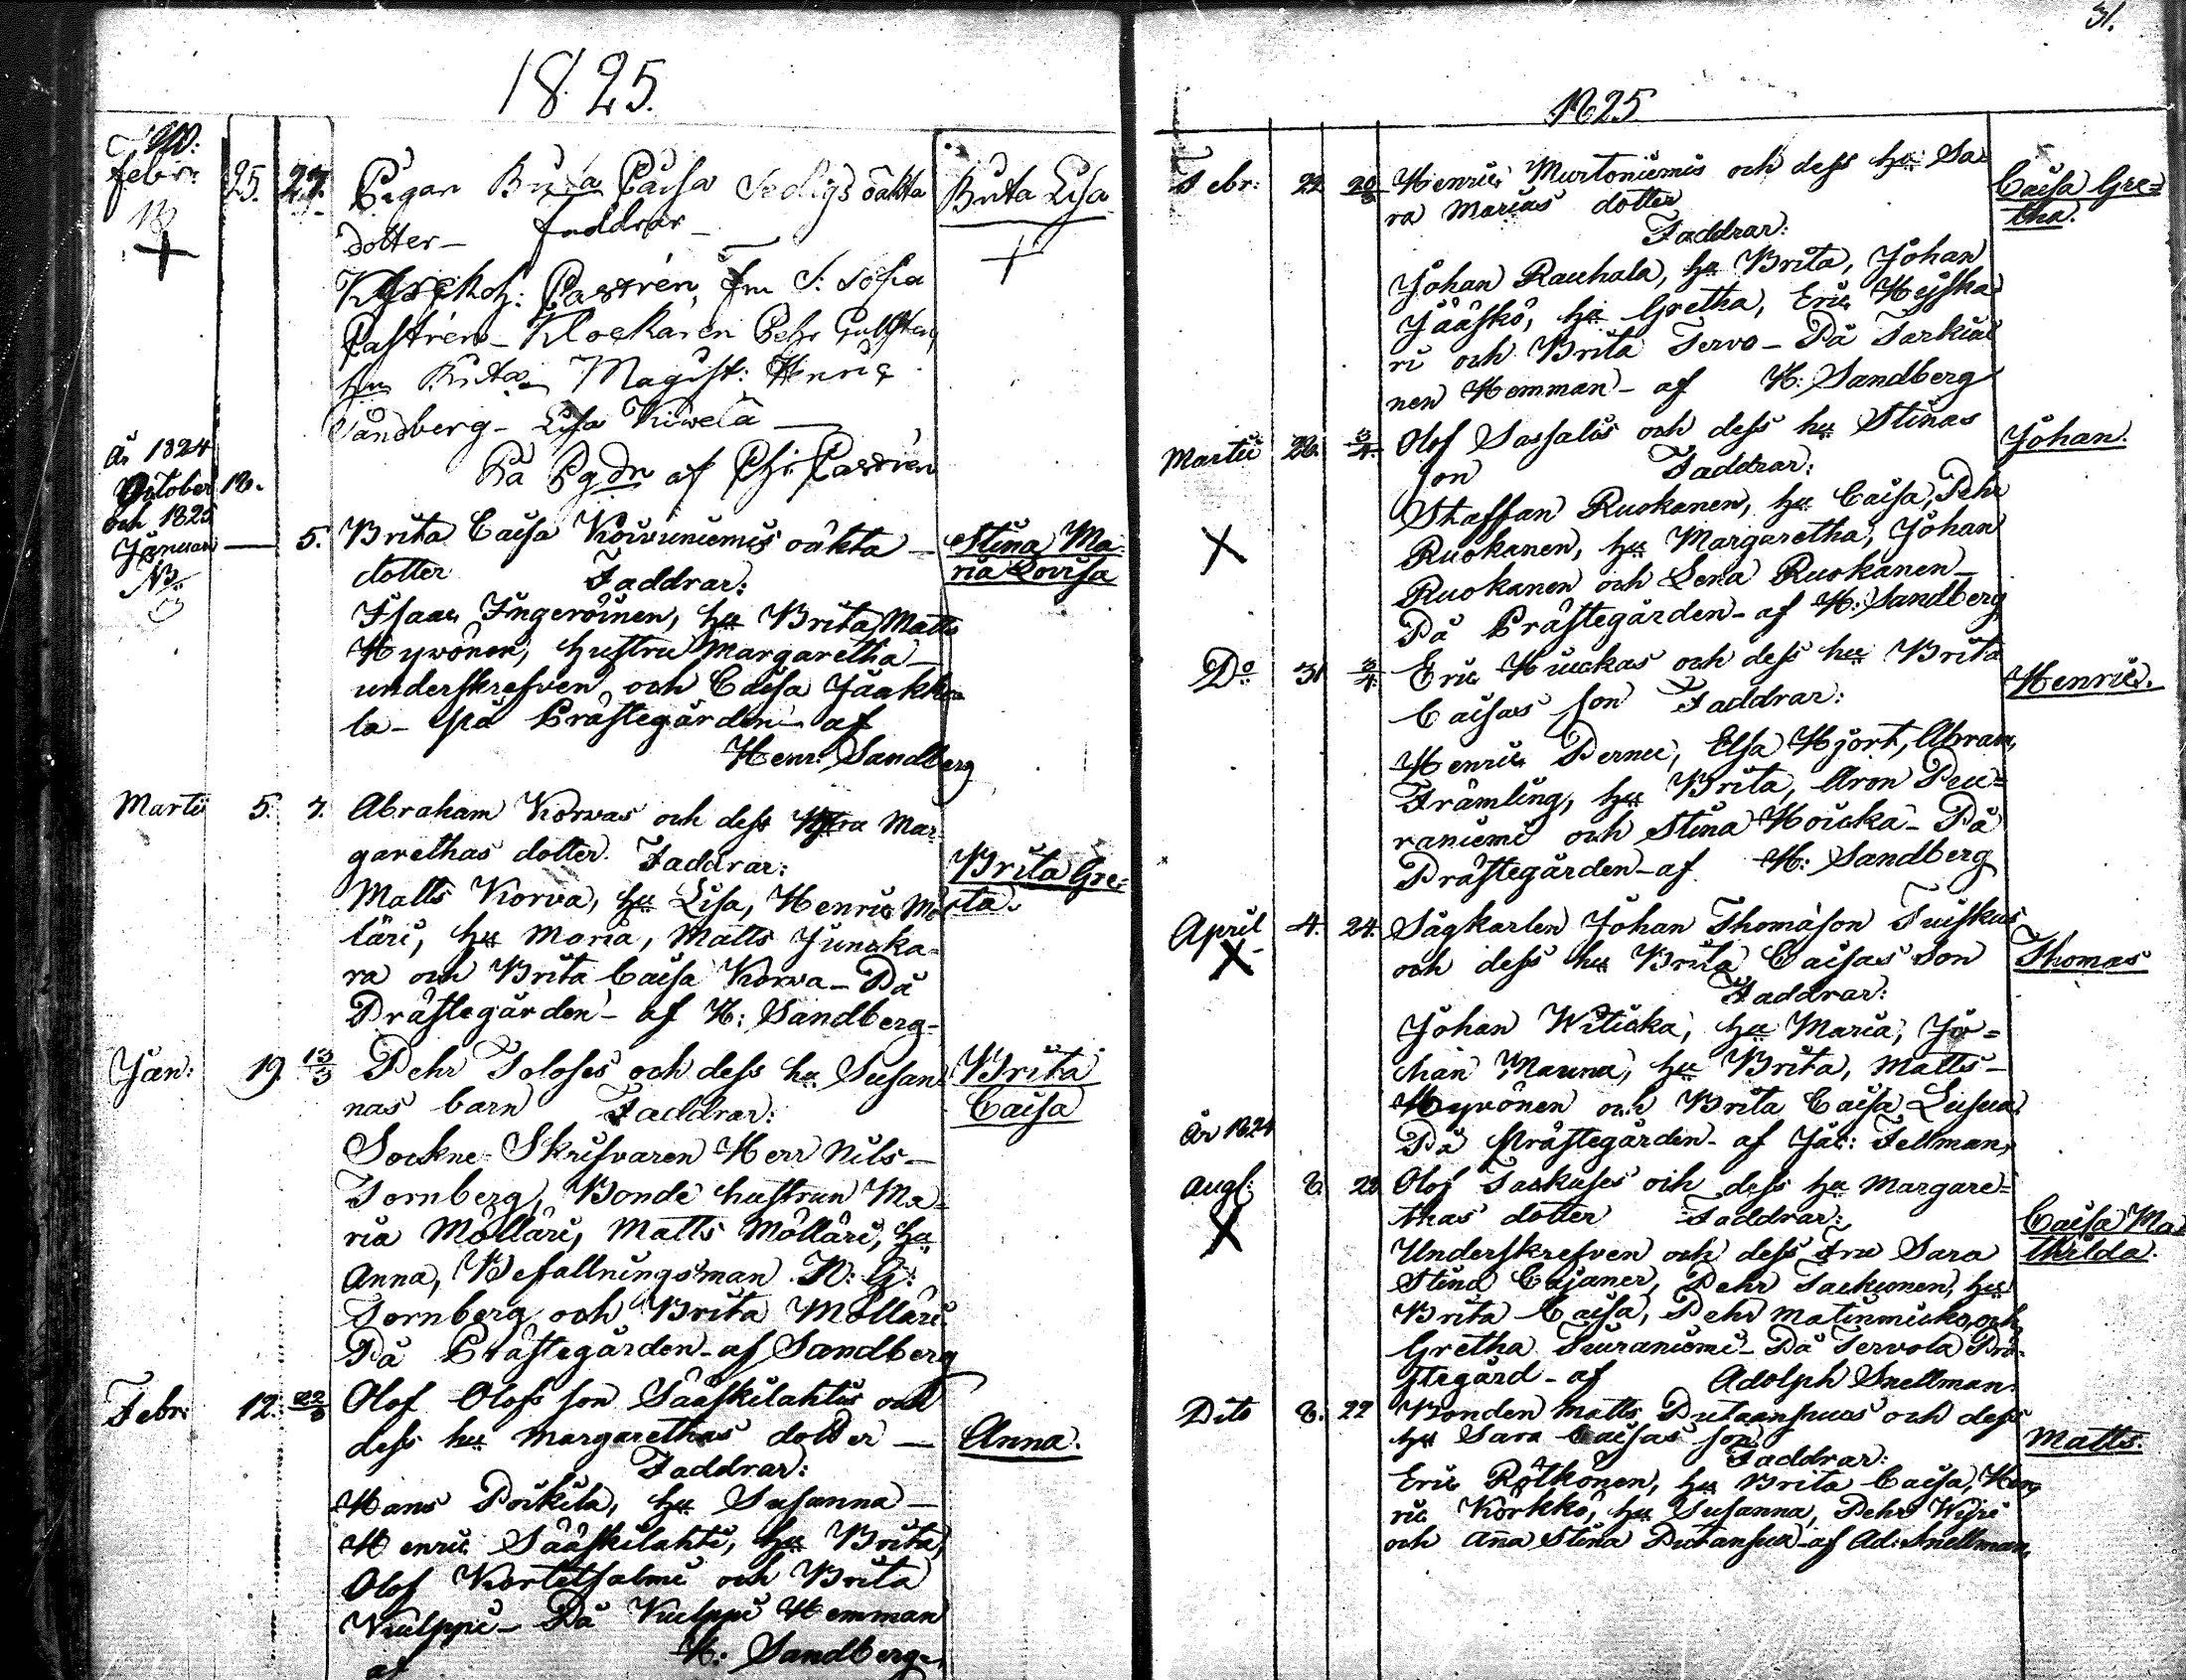 1825.
Febr: 25. 27. Pigan Brita Caisa Sedigs oäkta Brita Lisa
dotter - faddrar -
Kyrckoh: Castrén, fru S. Sofia
Castrén - Klockaren Pehr
hu Brita Magist: Henric
Sandberg - Lisa Kiwelä
På Pgdn af Castrén
År 1824
October 12.
och 1825
Januari — 5. Brita Caisa Koivuniemis oäkta — Stina Ma
NB. dotter Faddrar: ria Lovisa
Isaac Ingeröinen, hu Brita, Matts
Hyvönen, hustru Margaretha —
underskrefven och Caisa Jaakko
la - på Prästegården - af
Henr: Sandberg
Martii 5. 7. Abraham Korvas och dess Mar
garethas dotter. Faddrar: Brita Gre=
Matts Korva, hu Lisa, Henric Mö ta.
läri, hu Maria, Matts Junska
ra och Brita Caisa Korva - På
Prästegården - af H: Sandberg -
Jan: 19. 13/3 Pehr Toloses och dess hu Susan Brita
nas barn Faddrar: Caisa
Sockne Skrifvaren Herr Nils —
Tornberg, Bonde hustrun Ma
ria Mölläri, Matts Mölläri, hu
Anna, Befallningsman N: G:
Tornberg och Brita Mölläri.
På Prästegården - af Sandberg
Febr: 12. 22/3 Olof Olofs son Sääskilahtis och
dess hu Margarethas dotter — Anna.
Faddrar:
Hans Poikela, hu Susanna —
Henric Sääskilahti, hu Brita,
Olof Kortetsalmi och Brita
Kulppi - På Kulppi Hemman
af H: Sandberg
31.
1825
Febr: 22 20/3 Henric Murtoniemis och dess hu Sa Caisa Gre=
ra Marias dotter tha.
Faddrar:
Johan Rauhala, hu Brita, Johan
Jääskö, hu Gretha, Eric Heiska
ri och Brita Tervo - På Tarkiai
nen Hemman - af H: Sandberg
Martii 26. 3/4. Olof Sassalis och dess hu Stinas Johan.
son Faddrar:
Staffan Ruokanen, hu Caisa, Pehr
Ruokanen, hu Margaretha, Johan
Ruokanen och Lena Ruokanen —
På Prästegården - af H: Sandberg
Do 31 3/4. Eric Huckas och dess hu Brita Henric.
Caisas son Faddrar:
Henric Pernu, Elsa Hjort, Abram
Främling, hu Brita, Aron Peu=
raniemi och Stina Hoicka - På
Prästegården - af H: Sandberg
April 4. 24. Sågkarlen Johan Thomason Tuiskus Thomas
och dess hu Brita Caisas son
Faddrar:
Johan Witicka, hu Maria, Jo=
han Mauna, hu Brita, Matts —
Hyvönen och Brita Caisa Lusua
År 1824 På Prästegården - af Jac: Fellman,
Aug: 8 22 Olof Taskuses och dess hu Margare=
thas dotter Faddrar: Caisa Ma
Underskrefven och dess Fru Sara thilda.
Stina Cajaner, Pehr Tackunen, hu
Brita Caisa, Pehr Matinmicko, och
Gretha Tiuraniemi - På Tervola Prä
stegård - af Adolph Snellman.
Dito 8. 22 Bonden Matts Putaansuus och dess
hu Sara Caisas son Matts.
Faddrar:
Eric Rötkönen, hu Brita Caisa, Hen
ric Korkko, hu Susanna, Pehr
och Anna Stina Putansuu - af Ad: Snellman,